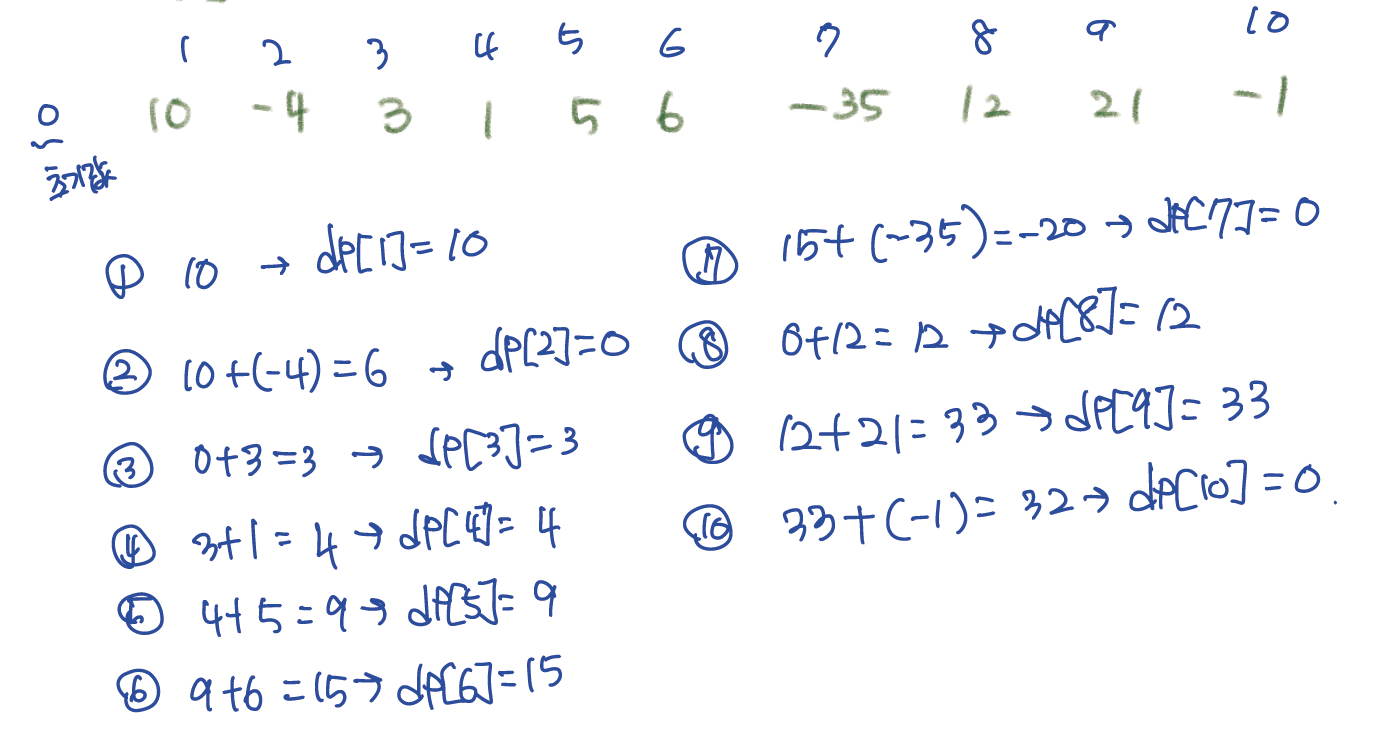 1 2 3 4 5 6 7 8 9 10
0 10 -4 3 1 5 6 -35 12 21 -1
초기값
① 10 → dp[1]=10
② 10+(-4)=6 → dp[2]=0
③ 0+3=3 → dp[3]=3
④ 3+1=4 → dp[4]=4
⑤ 4+5=9 → dp[5]=9
⑥ 9+6=15 → dp[6]=15
⑦ 15+(-35)=-20 → dp[7]=0
⑧ 0+12=12 → dp[8]=12
⑨ 12+21=33 → dp[9]=33
⑩ 33+(-1)=32 → dp[10]=0.